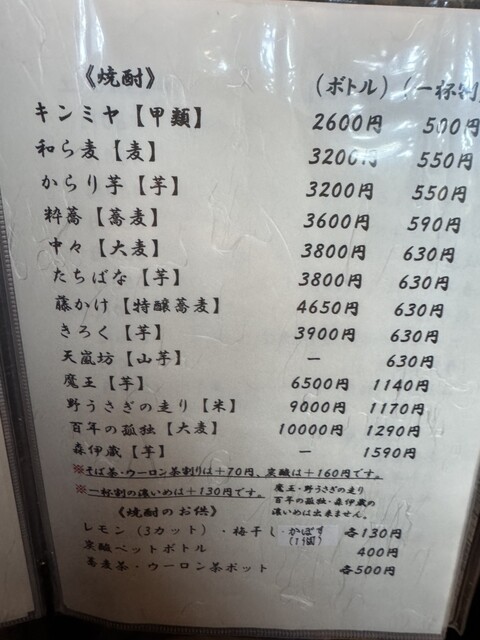 《焼酎》 (ボトル) (一杯割
キンミヤ【甲類】 2600円 500円
和ら麦【麦】 3200円 550円
からり芋【芋】 3200円 550円
粋蕎【蕎麦】 3600円 590円
中々【大麦】 3800円 630円
たちばな【芋】 3800円 630円
藤かけ【特醸蕎麦】 4650円 630円
きろく【芋】 3900円 630円
天嵐坊【山芋】 ー 630円
魔王【芋】 6500円 1140円
野うさぎの走り【米】 9000円 1170円
百年の孤独【大麦】 10000円 1290円
森伊蔵【芋】 ー 1590円
※そば茶・ウーロン茶割りは+70円、炭酸は+160円です。
※一杯割の濃いめは+130円です。 魔王・野うさぎの走り
百年の孤独・森伊蔵の
濃いめは出来ません。
《焼酎のお供》
レモン(3カット)・梅干し・かぼす(1個) 各130円
炭酸ペットボトル 400円
蕎麦茶・ウーロン茶ポット 各500円